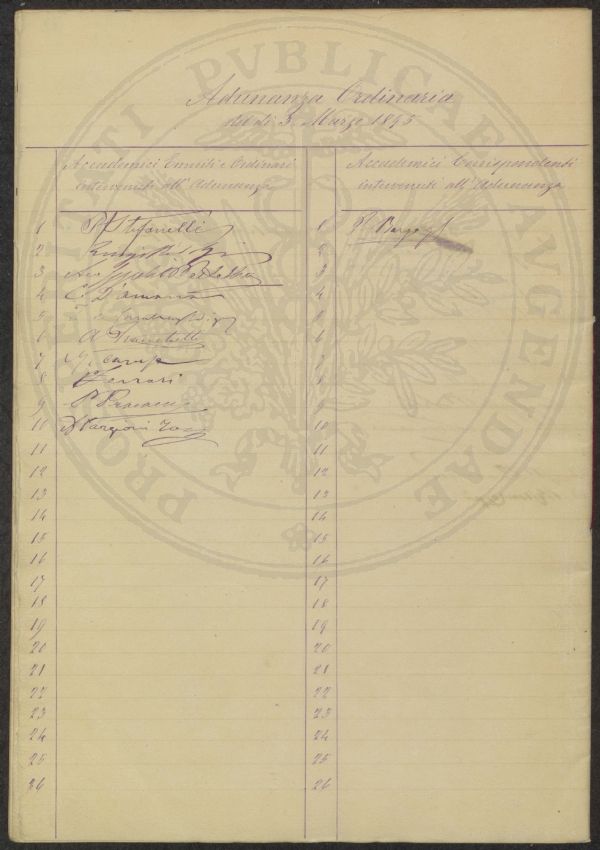 Adunanza Ordinaria
del dì 3. Marzo 1895
Accademici Emeriti e Ordinari
intervenuti all'Adunanza
Accademici Corrispondenti
intervenuti all'Adunanza
1 P. Stefanelli
2 Luigi
3
4 C. D'Ancona
5
6 A. Franchetti
7
8 Ferrari
9
10 A Targioni Tozz
11
12
13
14
15
16
17
18
19
20
21
22
23
24
25
26
1
2
3
4
5
6
7
8
9
10
11
12
13
14
15
16
17
18
19
20
21
22
23
24
25
26
PROSPERITATI PVBLICAE AVGENDAE